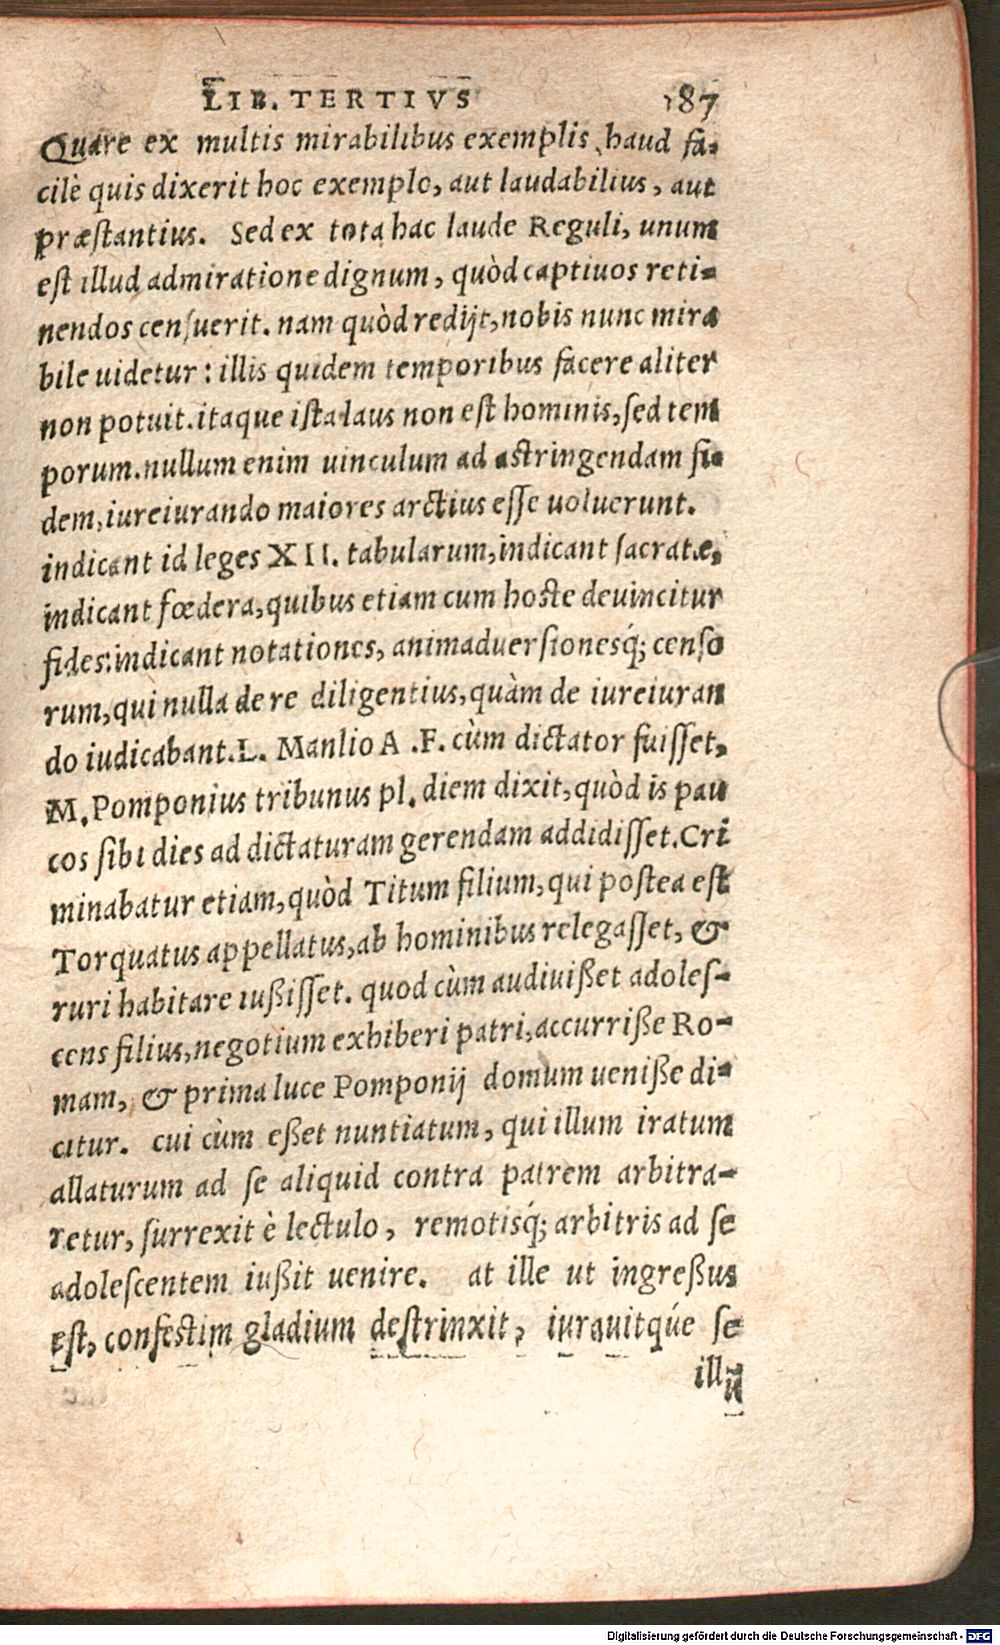 LIB. TERTIVS 187
Quare ex multis mirabilibus exemplis haud fa-
cilè quis dixerit hoc exemplo, aut laudabilius, aut
præstantius. Sed ex tota hac laude Reguli, unum
est illud admiratione dignum, quòd captiuos reti-
nendos censuerit. nam quòd redijt, nobis nunc mira
bile uidetur: illis quidem temporibus facere aliter
non potuit. itaque ista laus non est hominis, sed tem
porum. nullum enim uinculum ad astringendam fi-
dem, iureiurando maiores arctius esse uoluerunt.
indicant id leges XII. tabularum, indicant sacratæ,
indicant fœdera, quibus etiam cum hoste deuincitur
fides: indicant notationes, animaduersionesq́; censo
rum, qui nulla de re diligentius, quàm de iureiuran
do iudicabant. L. Manlio A .F. cùm dictator fuisset,
M. Pomponius tribunus pl. diem dixit, quòd is pau
cos sibi dies ad dictaturam gerendam addidisset. Cri
minabatur etiam, quòd Titum filium, qui postea est
Torquatus appellatus, ab hominibus relegasset, &
ruri habitare iußisset. quod cùm audiuißet adoles-
cens filius, negotium exhiberi patri, accurriße Ro-
mam, & prima luce Pomponij domum ueniße di-
citur. cui cùm eßet nuntiatum, qui illum iratum
allaturum ad se aliquid contra patrem arbitra-
retur, surrexit è lectulo, remotisq́; arbitris ad se
adolescentem iußit uenire. at ille ut ingreßus
est, confestim gladium destrinxit, iurauitqúe se
Digitalisierung gefördert durch die Deutsche Forschungsgemeinschaft - DFG